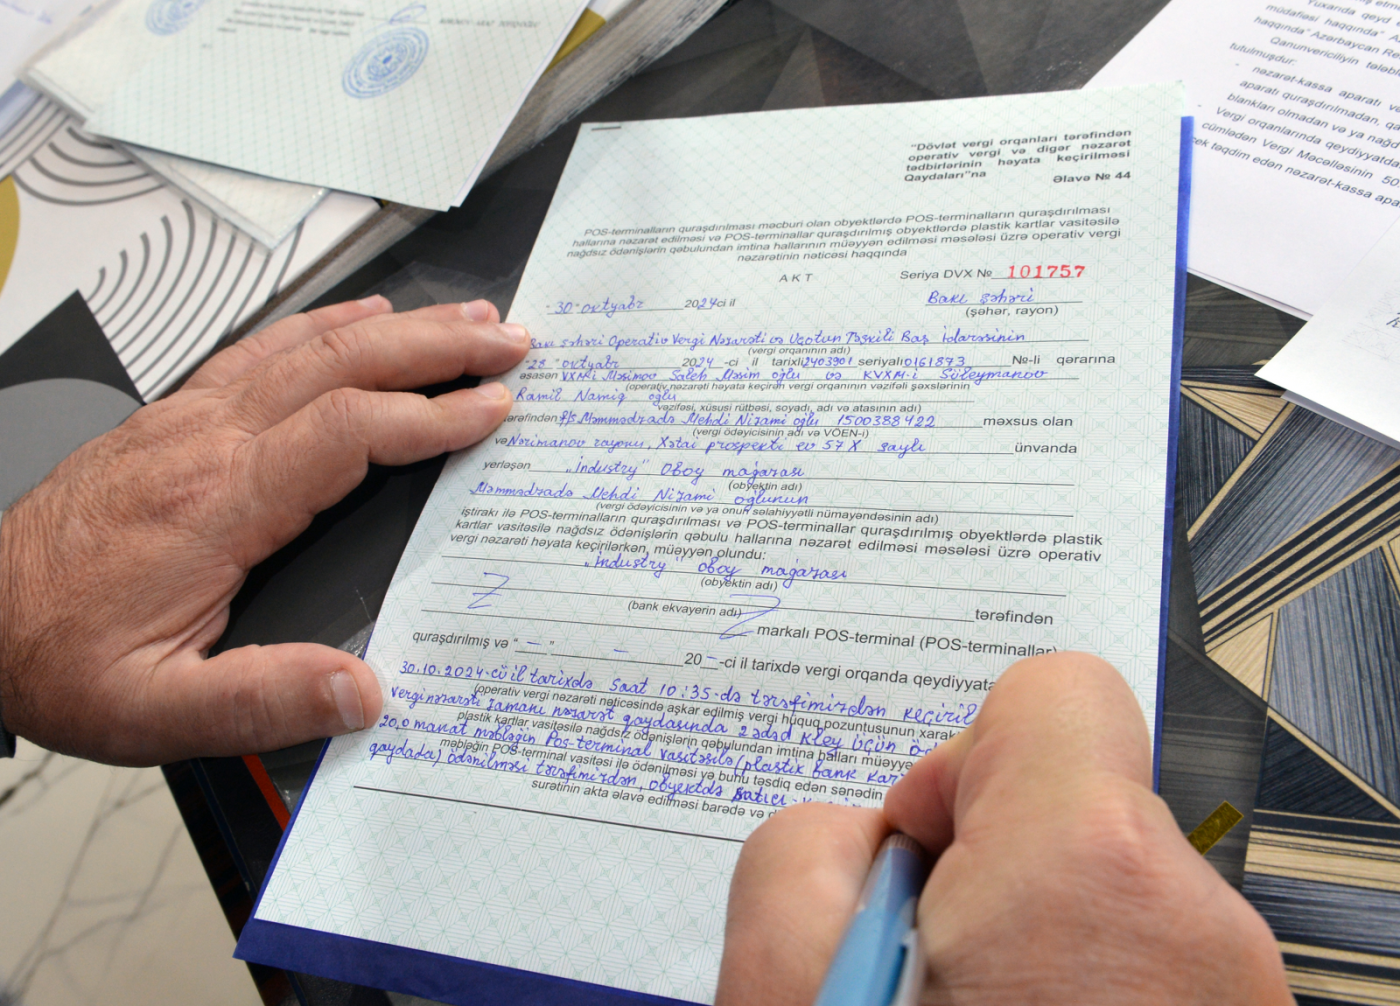 "Dövlət vergi orqanları tərəfindən
operativ vergi və digər nəzarət
tədbirlərinin həyata keçirilməsi
Qaydaları"na
Əlavə № 44
POS-terminalların quraşdırılması məcburi olan obyektlərdə POS-terminalların quraşdırılması
hallarına nəzarət edilməsi və POS-terminallar quraşdırılmış obyektlərdə plastik kartlar vasitəsilə
nağdsız ödənişlərin qəbulundan imtina hallarının müəyyən edilməsi məsələsi üzrə operativ vergi
nəzarətinin nəticəsi haqqında
AKT
Seriya DVX № 101757
"30" oktyabr 2024 ci il
Bakı şəhəri
(şəhər, rayon)
Bakı şəhəri Operativ Vergi Nəzarəti və Uçotun Təşkili Baş İdarəsinin
(vergi orqanının adı)
"28" oktyabr 2024 -ci il tarixli 2403901 seriyalı 0161873 №-li qərarına
əsasən VXMİ Məsimov Saleh Məsim oğlu və KVXM-i Süleymanov
(operativ nəzarəti həyata keçirən vergi orqanının vəzifəli şəxslərinin
Ramil Namiq oğlu
vəzifəsi, xüsusi rütbəsi, soyadı, adı və atasının adı)
tərəfindən f/ş Məmmədzadə Mehdi Nizami oğlu 1500388422 məxsus olan
(vergi ödəyicisinin adı və VÖEN-i)
və Nərimanov rayonu, Xətai prospekti ev 57 X saylı ünvanda
yerləşən "İndustry" Oboy mağazası
(obyektin adı)
Məmmədzadə Mehdi Nizami oğlunun
(vergi ödəyicisinin və ya onun səlahiyyətli nümayəndəsinin adı)
iştirakı ilə POS-terminalların quraşdırılması və POS-terminallar quraşdırılmış obyektlərdə plastik
kartlar vasitəsilə nağdsız ödənişlərin qəbulu hallarına nəzarət edilməsi məsələsi üzrə operativ
vergi nəzarəti həyata keçirilərkən, müəyyən olundu:
"İndustry" oboy mağazası
(obyektin adı)
Z tərəfindən
(bank ekvayerin adı)
Z markalı POS-terminal (POS-terminallar)
quraşdırılmış və "—" — 20–-ci il tarixdə vergi orqanda qeydiyyata
30.10.2024-cü il tarixdə saat 10:35-də tərəfimizdən keçiril
(operativ vergi nəzarəti nəticəsində aşkar edilmiş vergi hüquq pozuntusunun xarak
vergi nəzarəti zamanı nəzarət qaydasında 2 ədəd kley üçün öd
plastik kartlar vasitəsilə nağdsız ödənişlərin qəbulundan imtina halları müəyye
20,0 manat məbləğin Pos-terminal vasitəsilə (plastik bank kar
məbləğin POS-terminal vasitəsi ilə ödənilməsi və bunu təsdiq edən sənədin
qaydada) ödənilməsi tərəfimizdən, obyektdə satıcı-
surətinin akta əlavə edilməsi barədə və d
Yuxarıda qeyd
müdafiəsi haqqında" Az
haqqında" Azərbaycan Res
Qanunvericiliyin tələblə
tutulmuşdur:
- nəzarət-kassa aparatı və
aparatı quraşdırılmadan, qa
blankları olmadan və ya nağd
- Vergi orqanlarında qeydiyyatda
cümlədən Vergi Məcəlləsinin 50
təqdim edən nəzarət-kassa apa